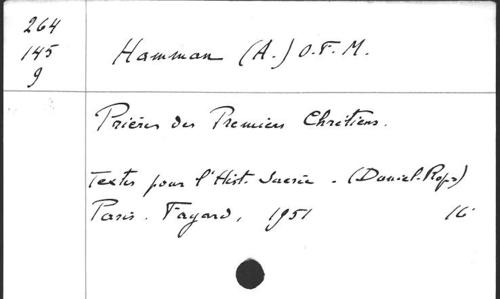 264
145
9
Hamman (A.) O.F.M.
Prières des Premiers Chrétiens.
Textes pour l'Hist. Sacrée - (Daniel-Rops)
Paris. Fayard, 1951 16